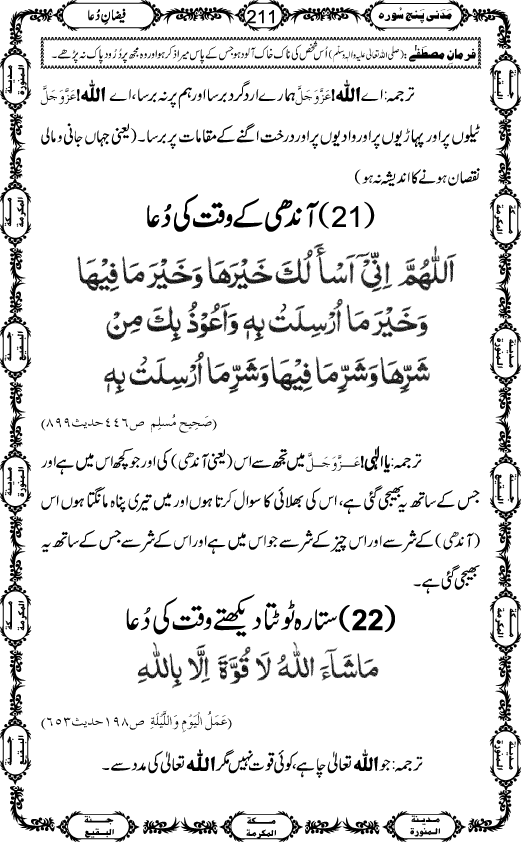 مَدَنی پنج سُورہ
211
فیضانِ دُعا
فرمانِ مصطَفٰے: (صلی اللہ تعالیٰ علیہ والہٖ وسلّم) اُس شخص کی ناک خاک آلود ہو جس کے پاس میرا ذکر ہو اور وہ مجھ پر دُرُود پاک نہ پڑھے۔
ترجمہ: اے اللہ! عَزَّوَجَلَّ ہمارے اردگرد برسا اور ہم پر نہ برسا، اے اللہ! عَزَّوَجَلَّ
ٹیلوں پر اور پہاڑیوں پر اور وادیوں پر اور درخت اگنے کے مقامات پر برسا۔ (یعنی جہاں جانی و مالی
نقصان ہونے کا اندیشہ نہ ہو)
(21) آندھی کے وقت کی دُعا
اَللّٰهُمَّ اِنِّیْٓ اَسْأَلُكَ خَیْرَهَا وَخَیْرَ مَا فِیْهَا
وَخَیْرَ مَا اُرْسِلَتْ بِهٖ وَاَعُوْذُ بِكَ مِنْ
شَرِّهَا وَشَرِّ مَا فِیْهَا وَشَرِّ مَا اُرْسِلَتْ بِهٖ
(صَحِیح مُسلِم ص۴۴۶ حدیث۸۹۹)
ترجمہ: یا الٰہی! عَزَّوَجَلَّ میں تجھ سے اس (یعنی آندھی) کی اور جو کچھ اس میں ہے اور
جس کے ساتھ یہ بھیجی گئی ہے، اس کی بھلائی کا سوال کرتا ہوں اور میں تیری پناہ مانگتا ہوں اس
(آندھی) کے شر سے اور اس چیز کے شر سے جو اس میں ہے اور اس کے شر سے جس کے ساتھ یہ
بھیجی گئی ہے۔
(22) ستارہ ٹوٹتا دیکھتے وقت کی دُعا
مَاشَآءَ اللهُ لَا قُوَّةَ اِلَّا بِاللهِ
(عَمَلُ الْیَوْمِ وَاللَّیْلَةِ ص۱۹۸ حدیث۶۵۳)
ترجمہ: جو اللہ تعالیٰ چاہے، کوئی قوت نہیں مگر اللہ تعالیٰ کی مدد سے۔
مدینۃ المنورۃ
مکۃ المکرمۃ
جنۃ البقیع